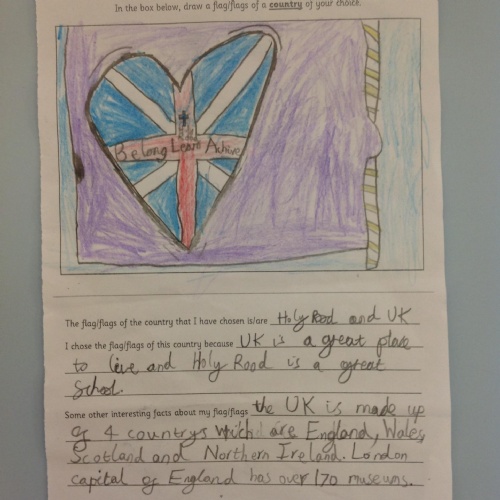 In the box below, draw a flag/flags of a country of your choice.
Belong Learn Achive
The flag/flags of the country that I have chosen is/are Holy Rood and UK
I chose the flag/flags of this country because UK is a great place
to live and Holy Rood is a great
School.
Some other interesting facts about my flag/flags the UK is made up
of 4 countrys witch are England, Wales,
Scotland and Northern Ireland. London
capital of England has over 170 museums.